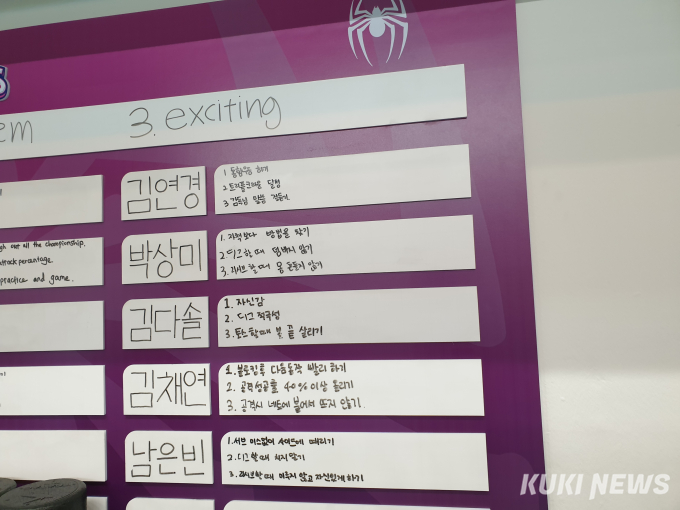 em
3. exciting
gh our all the championship.
attack percentage.
practice and game.
김연경
1 통합우승 하기
2 트리플크라운 달성
3 감독님 말씀
박상미
1. 지적보다 방법을 찾기
2 디그할때 덤비지 않기
3. 리시브할때 몸 흔들지 않기
김다솔
1. 자신감
2. 디그 적극성
3. 토스할때 볼 끝 살리기
김채연
1. 블로킹후 다음동작 빨리 하기
2. 공격성공률 40%이상 올리기
3. 공격시 네트에 붙어서 뜨지 않기.
남은빈
1. 서브 미스없이 사이드에 때리기
2. 디그할때 서지않기
3. 리시브할때 미루지 않고 자신있게 하기
KUKI NEWS